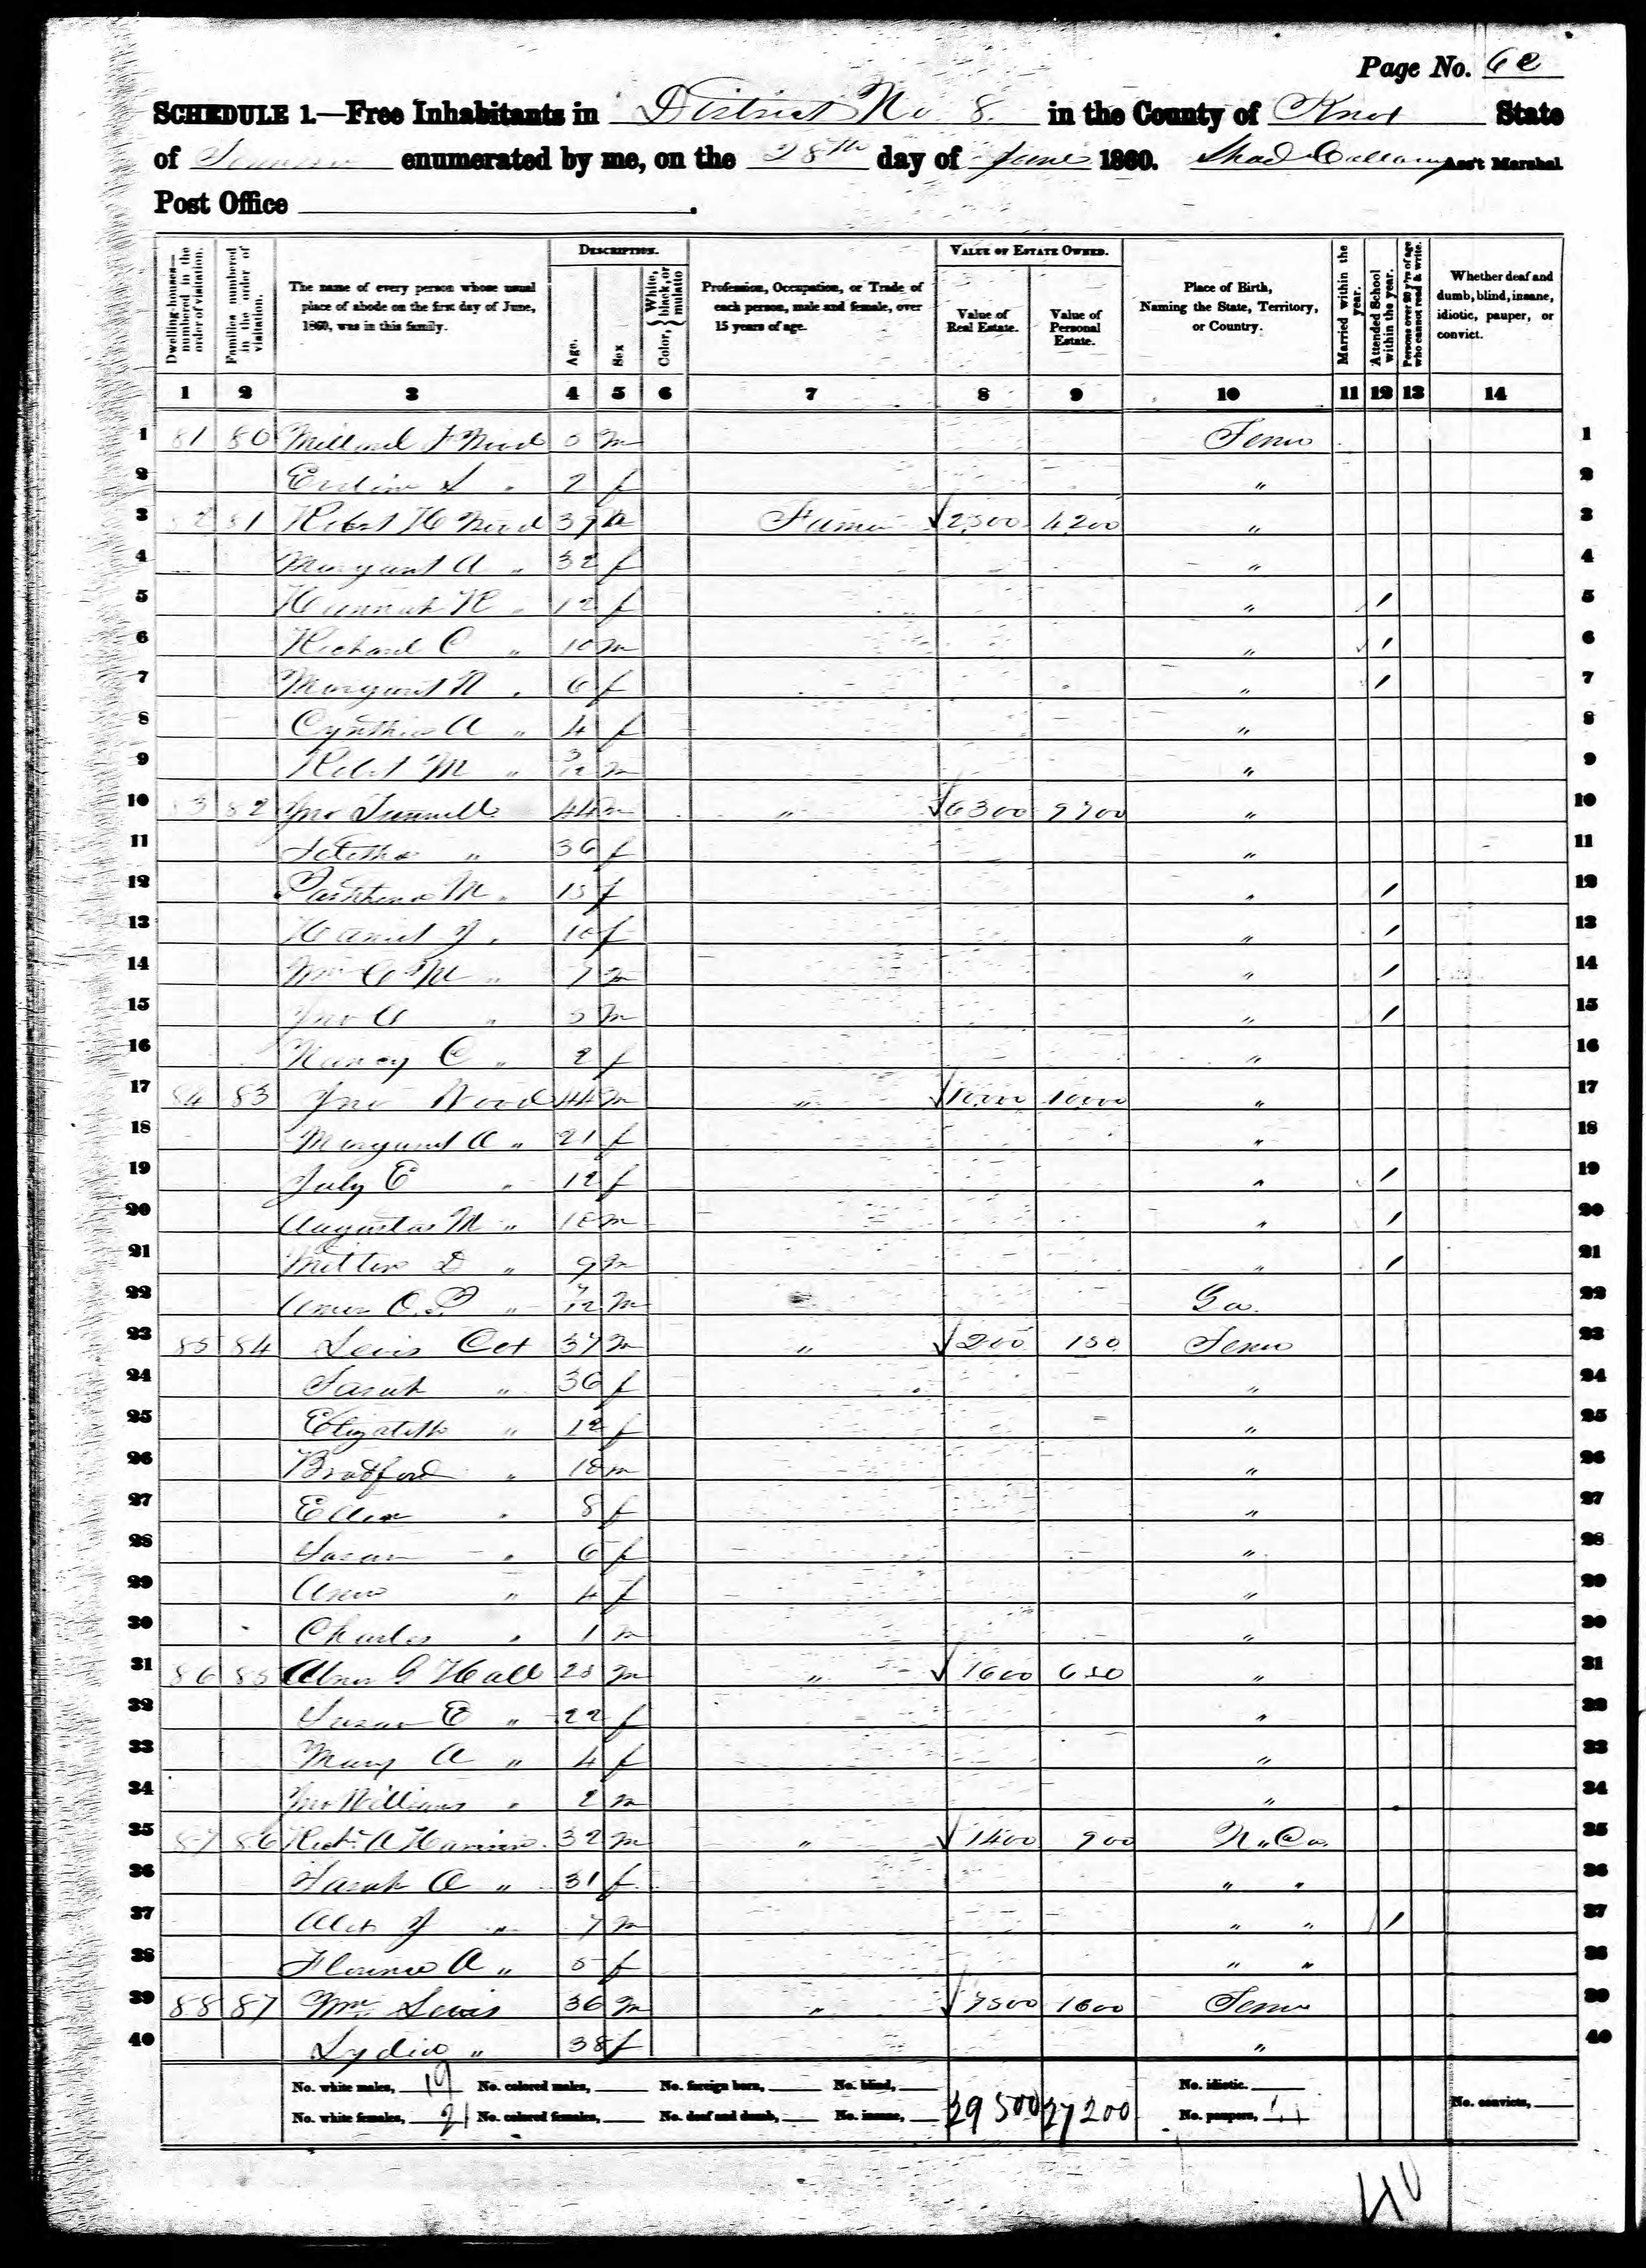 Page No. 62
SCHEDULE 1.—Free Inhabitants in District No 8. in the County of Knox State
of Tennessee enumerated by me, on the 28th day of June 1860. Ass't Marshal
Post Office .
Dwelling-houses— numbered in the order of visitation. Families numbered in the order of visitation. The name of every person whose usual place of abode on the first day of June, 1860, was in this family. DESCRIPTION. Age. Sex Color, White, black, or mulatto Profession, Occupation, or Trade of each person, male and female, over 15 years of age. VALUE OF ESTATE OWNED. Value of Real Estate. Value of Personal Estate. Place of Birth, Naming the State, Territory, or Country. Married within the year. Attended School within the year. Persons over 20 y'rs of age who cannot read & write. Whether deaf and dumb, blind, insane, idiotic, pauper, or convict.
1 2 3 4 5 6 7 8 9 10 11 12 13 14
1 81 80 Millard F Wood m Tenn 1
2 S " 2 f " 2
3 82 81 Robt H Wood 39 m Farmer 2,500 4200 " 3
4 Margaret A " 32 f " 4
5 Hannah " 12 f " / 5
6 Richard C " 10 m " / 6
7 Margaret " 6 f " / 7
8 Cynthia A " 4 f " 8
9 Robt M " 3/12 m " 9
10 83 82 Jno Tunnell 44 m " 6300 9700 " 10
11 " 36 f " 11
12 M " 15 f " / 12
13 Harriet J " 10 f " / 13
14 Wm " 7 m " / 14
15 Jno A " 5 m " / 15
16 Nancy C " 2 f " 16
17 84 83 Jno Wood 44 m " 10,000 10,000 " 17
18 Margaret A " 21 f " 18
19 July E " 12 f " / 19
20 Augustus M " 10 m " / 20
21 D " 9 m " / 21
22 O.P. " /12 m Ga. 22
23 85 84 Lewis Cox 37 m " 200 150 Tenn 23
24 Sarah " 36 f " 24
25 Elizabeth " 12 f " 25
26 Bradford " 10 m " 26
27 Ellen " 8 f " 27
28 Susan " 6 f " 28
29 Ann " 4 f " 29
30 Charles " 1 m " 30
31 86 85 G Hall 25 m " 1600 650 " 31
32 Susan E " 22 f " 32
33 Mary A " 4 f " 33
34 Jno Williams " 2 m " 34
35 87 86 A 32 m " 1400 900 N. Ca. 35
36 Sarah A " 31 f " " 36
37 Alex J " 7 m " " / 37
38 Florence A " 5 f " " 38
39 88 87 Wm Lewis 36 m " 7500 1600 Tenn 39
40 Lydia " 38 f " 40
No. white males, 19 No. colored males, No. foreign born, No. blind, No. idiotic.
No. white females, 21 No. colored females, No. deaf and dumb, No. insane, 29500 27200 No. paupers, No. convicts,
40